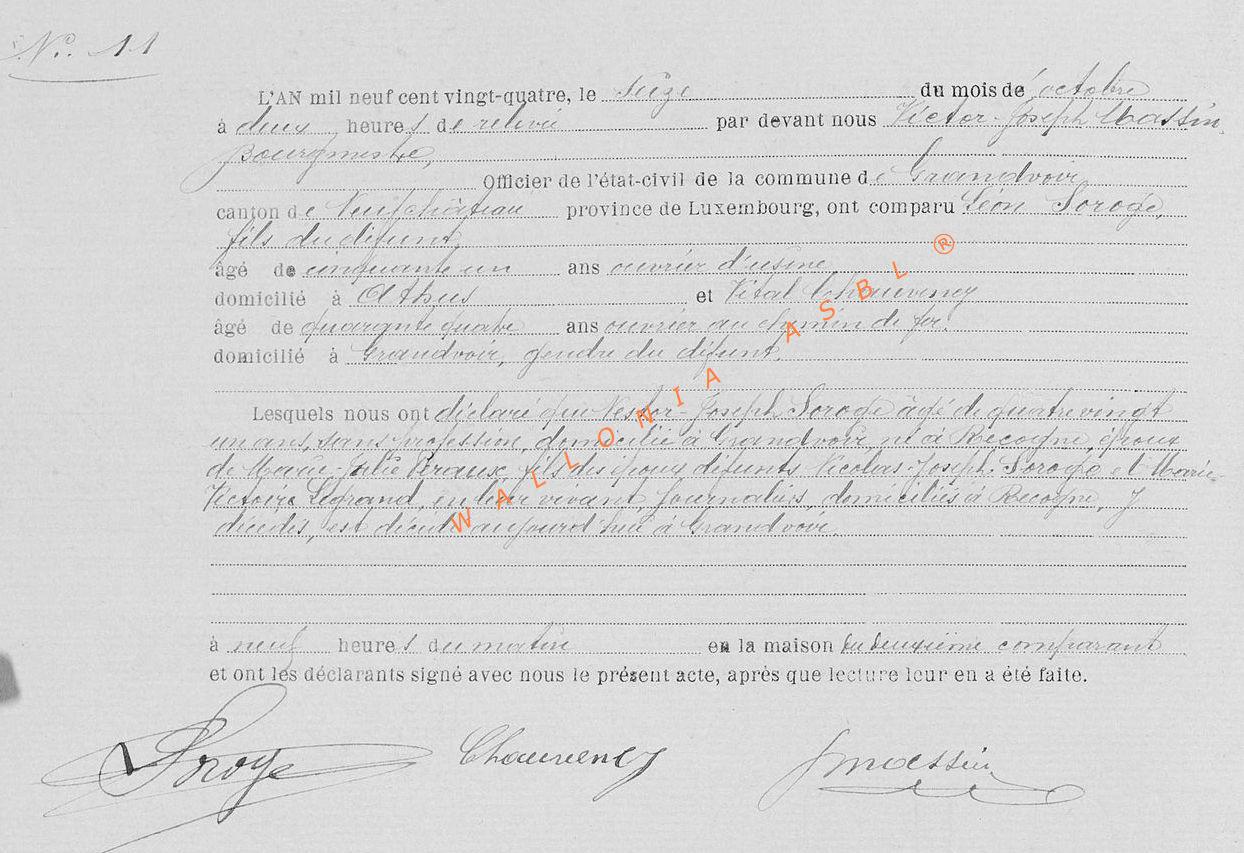 No. 11
L'AN mil neuf cent vingt-quatre, le seize du mois de octobre
à deux heures de relevée par devant nous Victor-Joseph Massin,
Bourgmestre,
Officier de l'état-civil de la commune de Grandvoir,
canton de Neufchâteau province de Luxembourg, ont comparu Léon Soroge,
fils du difunt,
âgé de cinquante un ans ouvrier d'usine
domicilié à Athus et Vital Chauvency
âgé de quarante quatre ans ouvrier au chemin de fer.
domicilié à Grandvoir, gendre du difunt,
Lesquels nous ont déclaré que Nestor-Joseph Soroge âgé de quatre vingt
un ans, sans profession, domicilié à Grandvoir, né à Recogne, époux
de Marie-Julie Peraux, fils des époux défunts Nicolas-Joseph Soroge et Marie-
Victoire Legrand, en leur vivant, journaliers, domiciliés à Recogne, y
décédés, est décédé aujourd'hui à Grandvoir.
à neuf heures du matin en la maison du deuxième comparant
et ont les déclarants signé avec nous le présent acte, après que lecture leur en a été faite.
Soroge Chauvency J Massin
WALLONIA ASBL ®